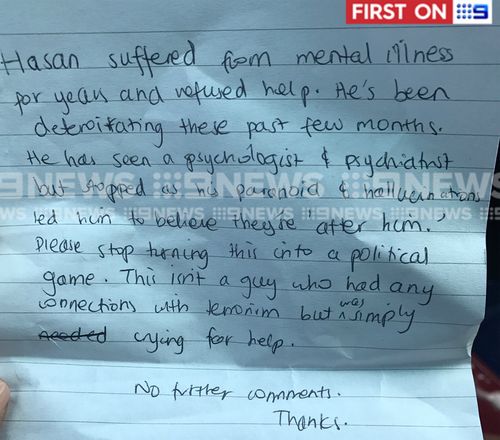 FIRST ON 9
Hasan suffered from mental illness
for years and refused help. He's been
deteroitating these past few months.
He has seen a psychologist & psychiatrist
but stopped as his paranoid & hallucinations
9NEWS 9NEWS 9NEWS 9NEWS
led him to believe they're after him."
Please stop turning this into a political
game. This isn't a guy who had any
connections with terrorism but was simply
needed crying for help.
No further comments.
Thanks.